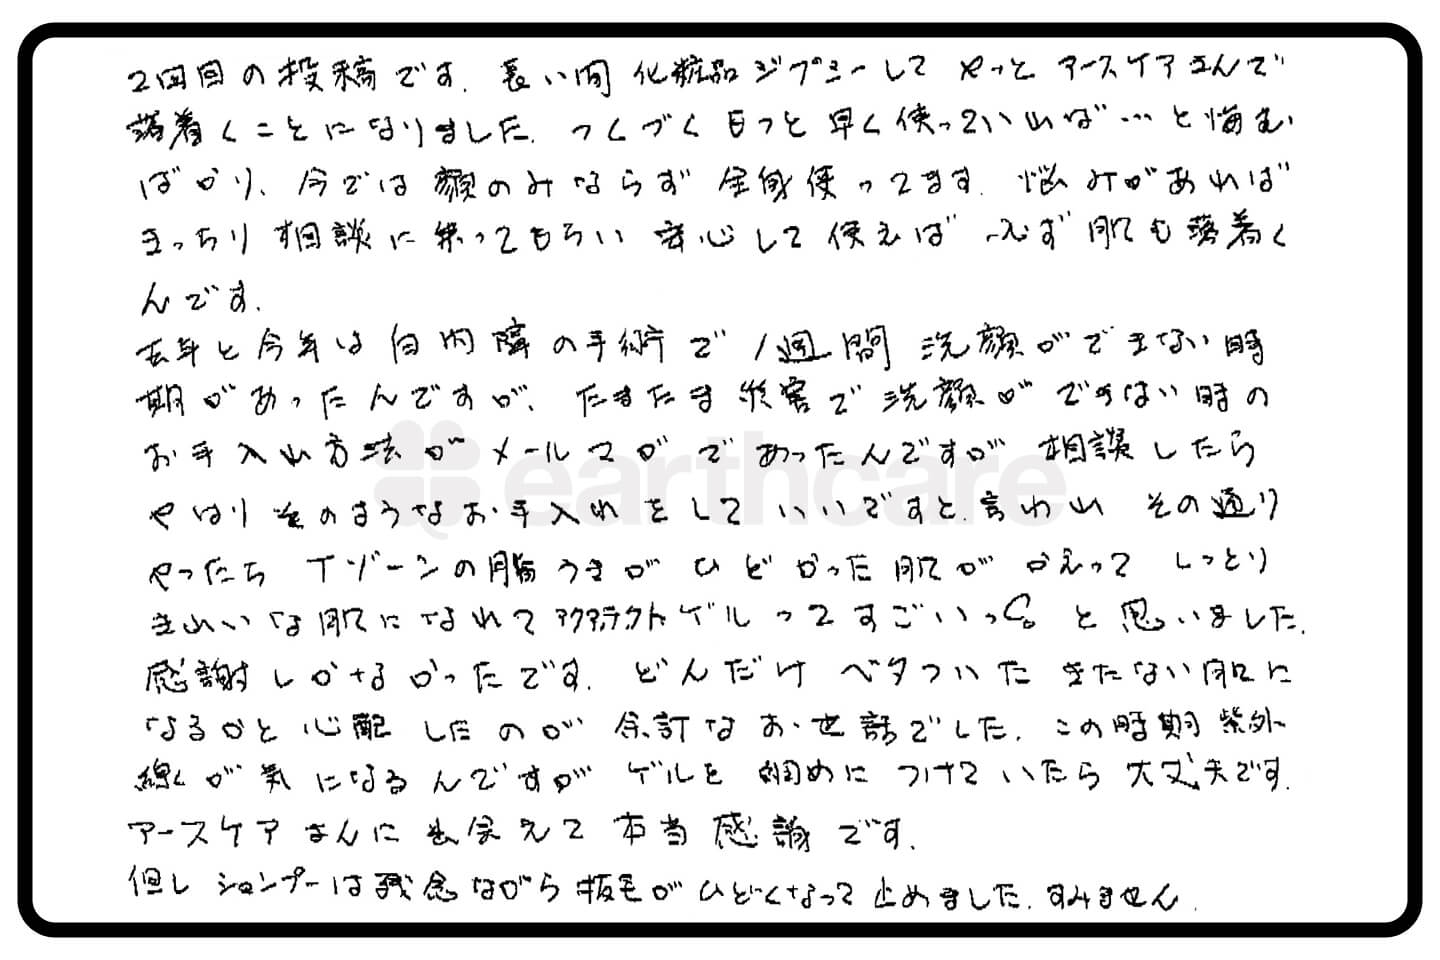 2回目の投稿です。長い間 化粧品ジプシーして やっと アースケアさんで
落着くことになりました。つくづく もっと 早く 使っていれば…と悔む
ばかり、今では 顔のみならず 全身使ってます。悩みがあれば
きっちり 相談に乗ってもらい 安心して 使えば 必ず 肌も落着く
んです。
去年と今年は 白内障の手術で 1週間 洗顔ができない時
期があったんですが、たまたま 災害で 洗顔が できない時の
お手入れ方法が メールマガで あったんですが 相談したら
やはり そのようなお手入れをして いいですと言われ その通り
やったら Tゾーンの脂うきが ひどかった肌が かえって しっとり
きれいな肌になれて アクアテクトゲルってすごいっ。と思いました。
感謝しかなかったです。どんだけ ベタついた きたない肌に
なるかと 心配 したのが 余計なお世話でした。この時期 紫外
線くが 気になるんですが ゲルを 細めに つけていたら 大丈夫です。
アースケアさんに 出会えて 本当 感謝です。
但し シャンプーは残念ながら 抜毛が ひどくなって 止めました。すみません。
earthcare